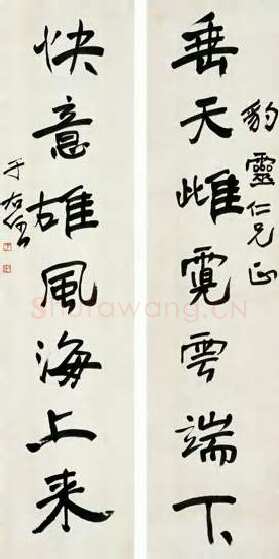 豹靈仁兄正
垂天雌霓雲端下
快意雄風海上来
于右任
Shufawang.CN